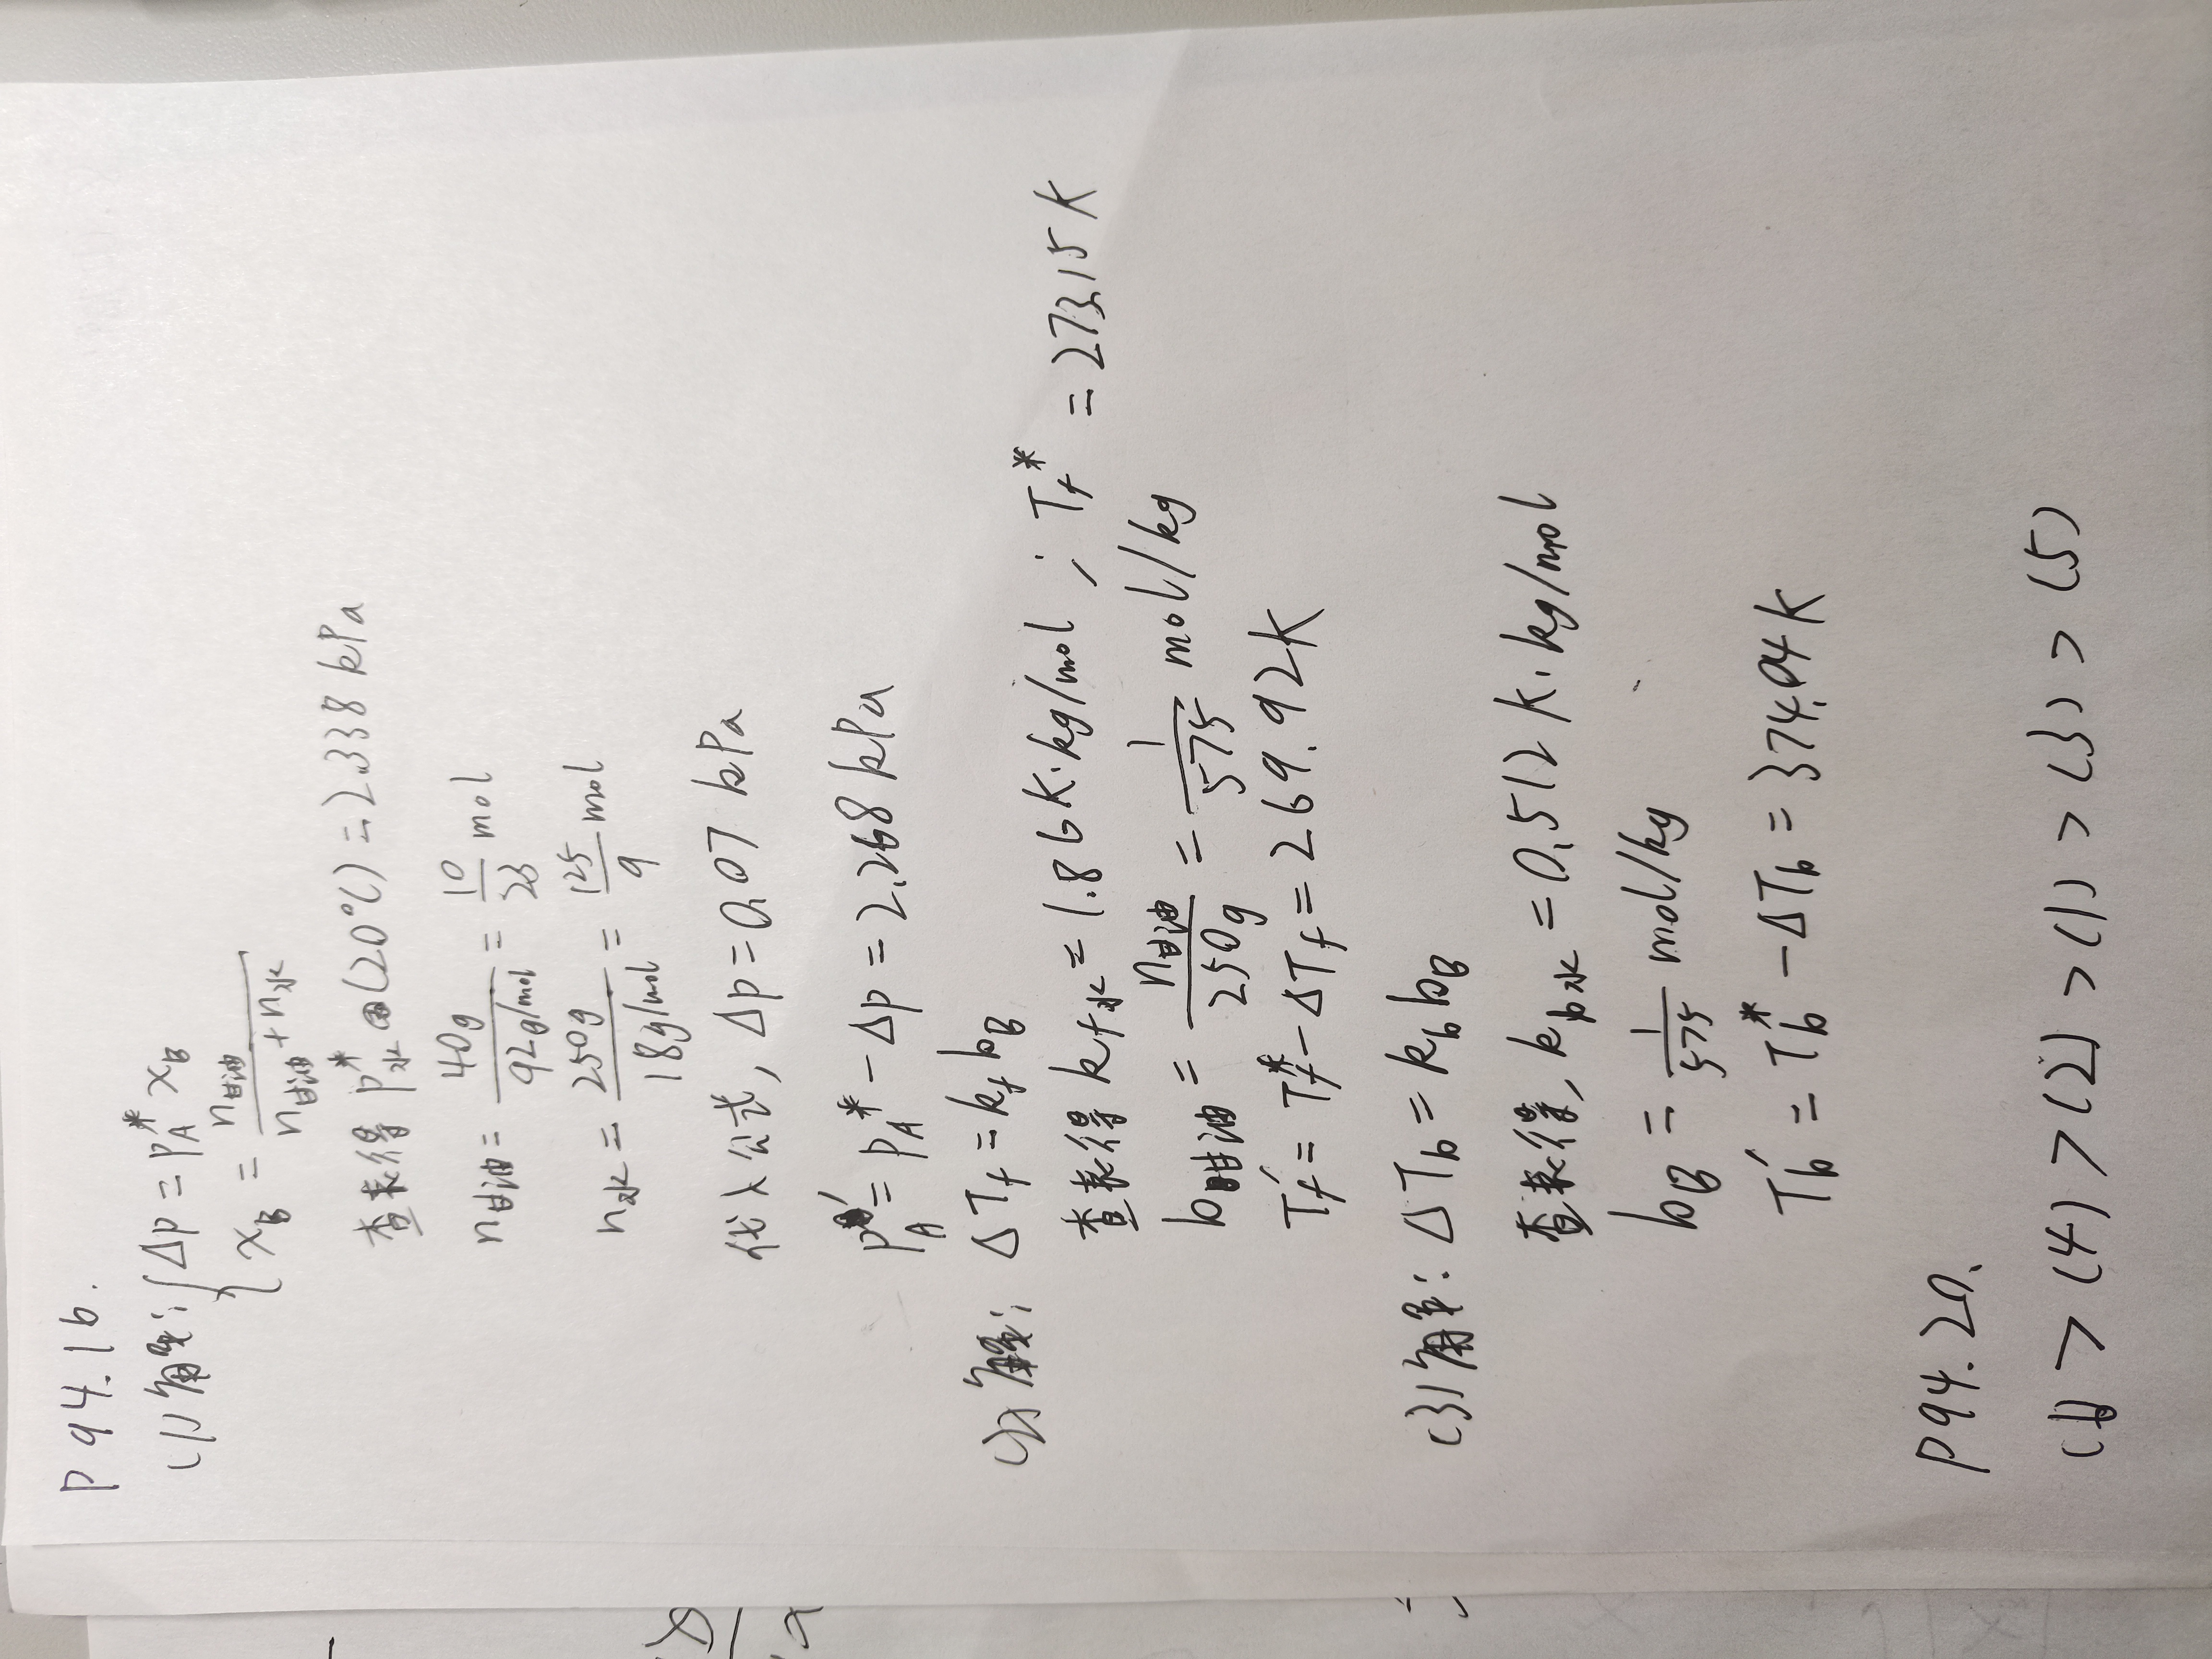 P 94.16.
(1)解: Δp = p_A^* x_B
x_B = n甘油/(n甘油+n水)
查表得 p水^* (20℃) = 2.338 kPa
n甘油 = 40g/(92g/mol) = 10/23 mol
n水 = 250g/(18g/mol) = 125/9 mol
代入公式, Δp = 0.07 kPa
p_A' = p_A^* - Δp = 2.268 kPa
(2)解: ΔT_f = k_f b_B
查表得 k_f水 = 1.86 K·kg/mol ; T_f^* = 273.15 K
b甘油 = n甘油/250g = 1/575 mol/kg
T_f' = T_f^* - ΔT_f = 269.92K
(3)解: ΔT_b = k_b b_B
查表得, k_b水 = 0.512 K·kg/mol
b_B = 1/575 mol/kg
T_b' = T_b^* - ΔT_b = 374.04K
P94.20.
(6) > (4) > (2) > (1) > (3) > (5)